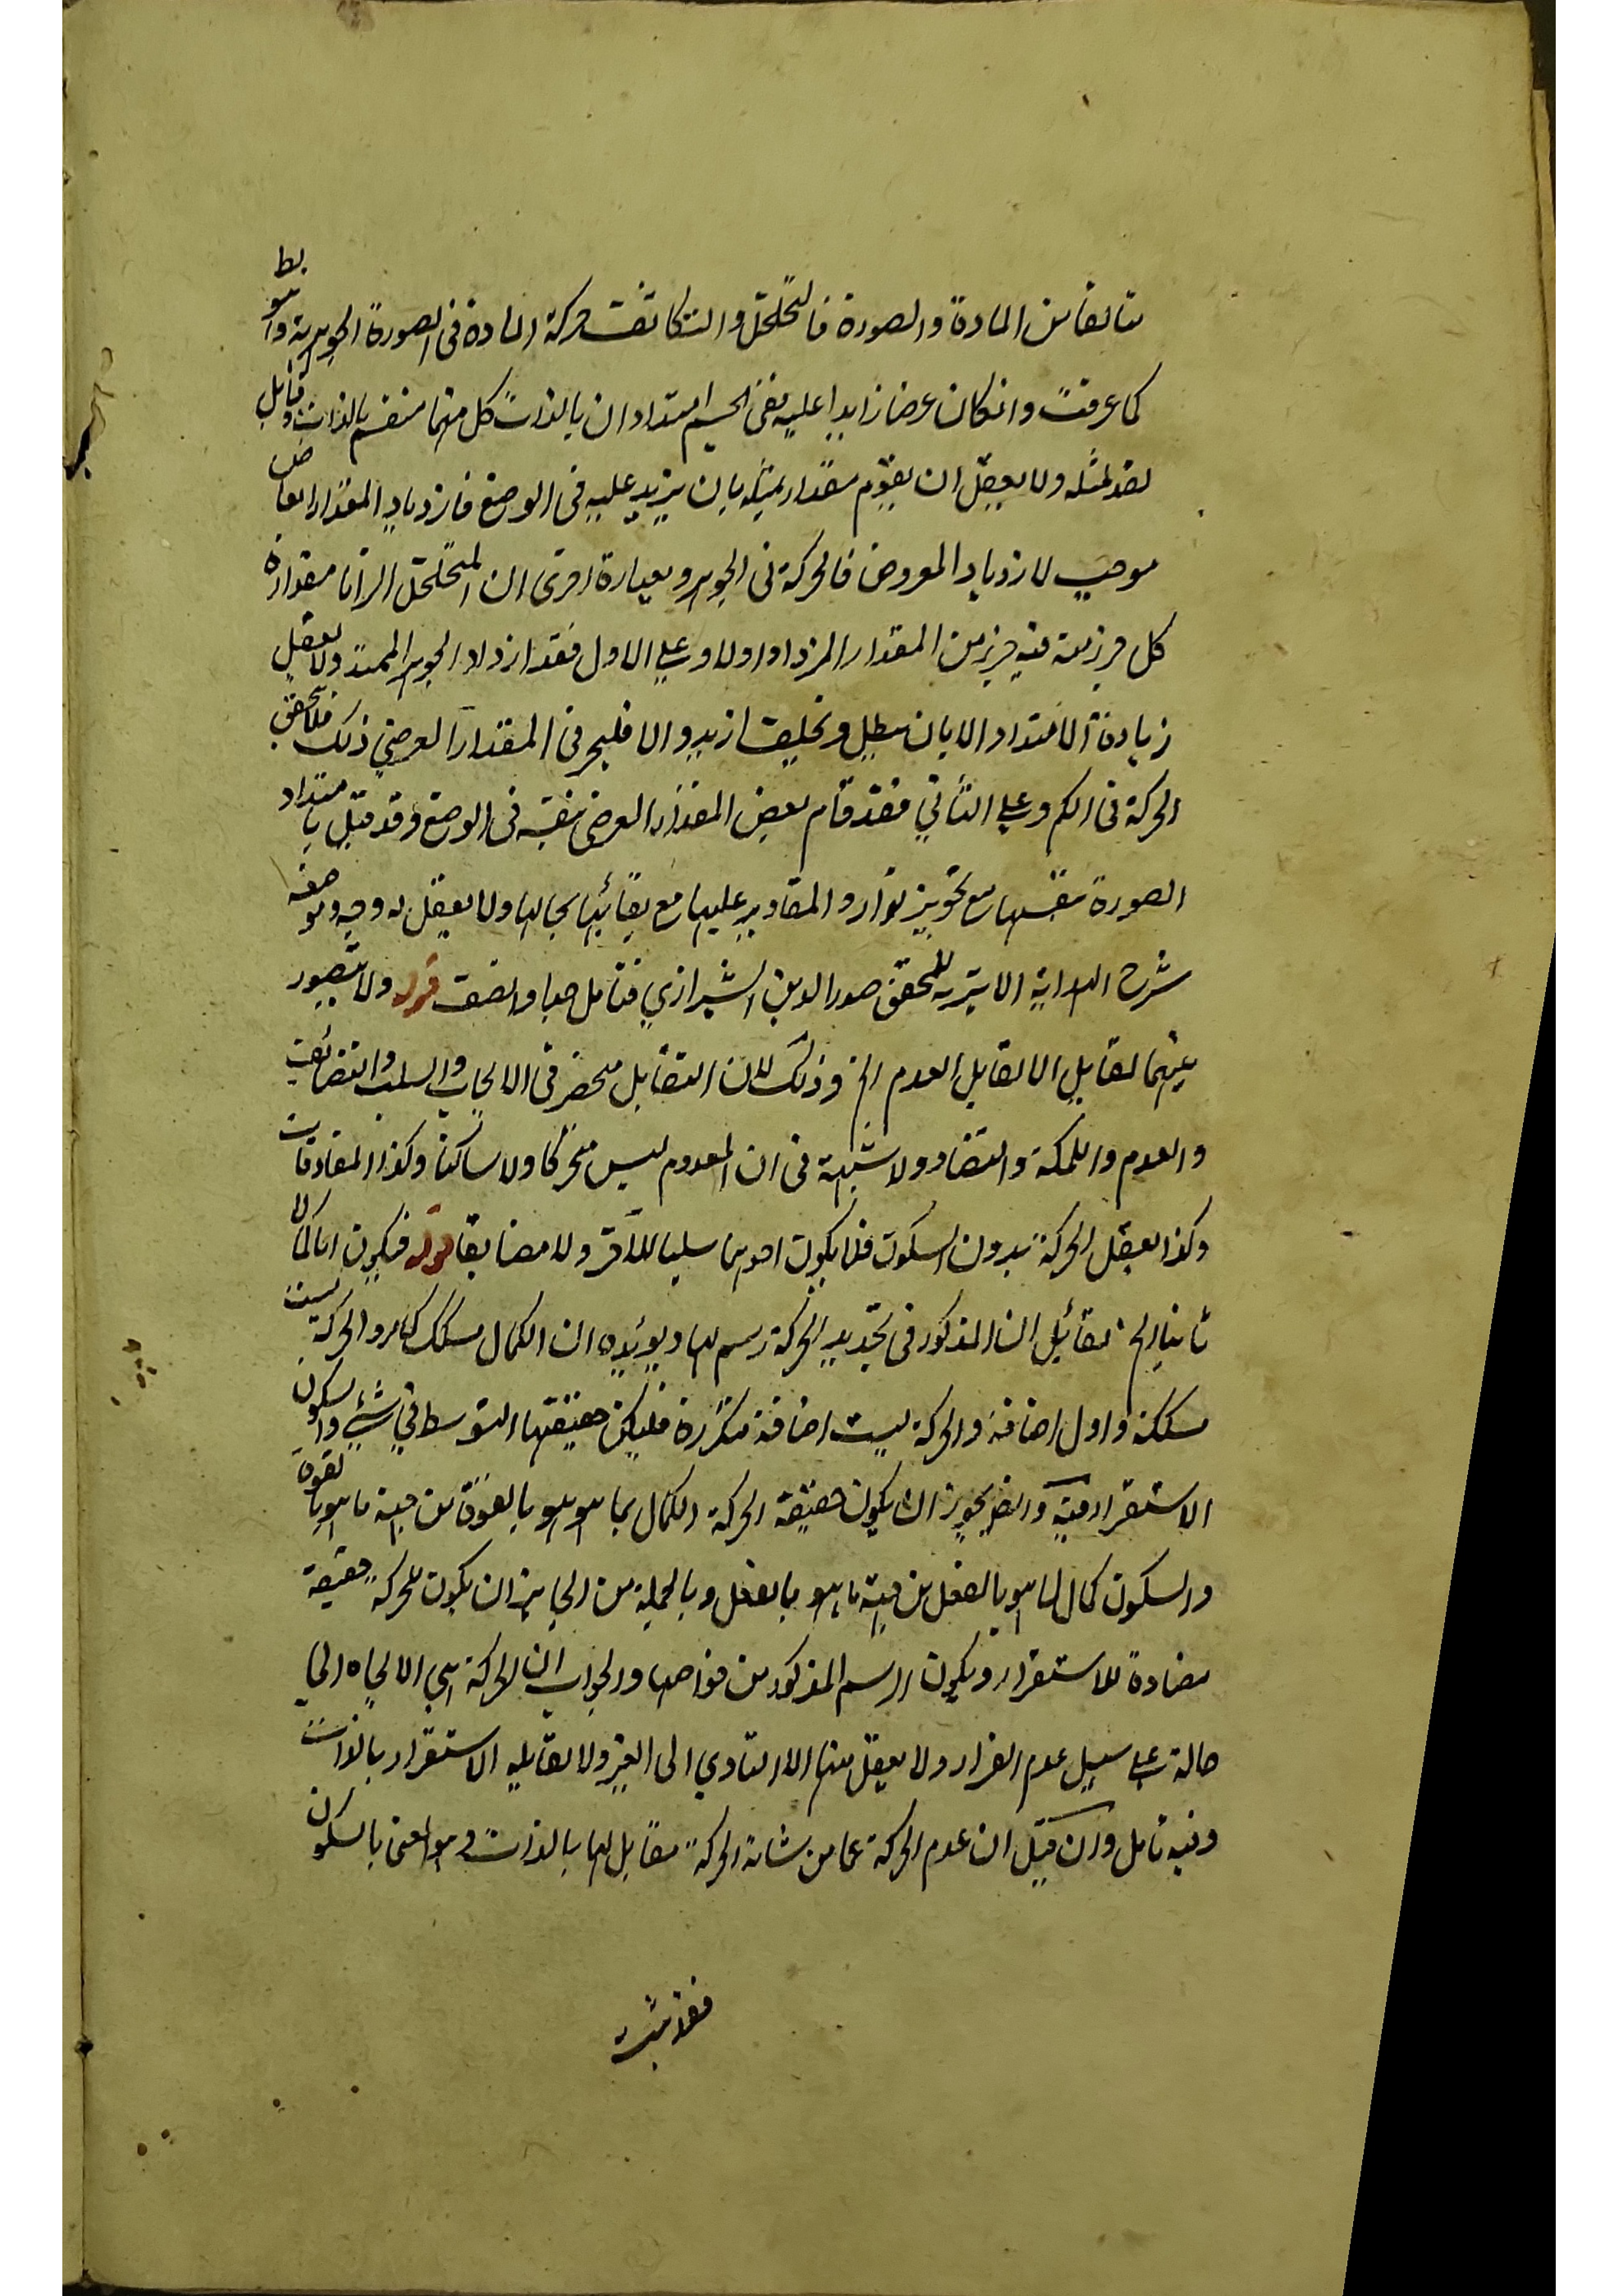 متالفا من المادة والصورة فالتخلخل والتكاثف حركة المادة فى الصورة الجوهرية وهو بط
كما عرفت وان كان عرضا زايدا عليه ففى الجسم امتدادان بالذات كل منهما منقسم بالذات وقابل
لقد لمثله ولا يعقل ان يقوم مقدار بمثله بان يزيد عليه فى الوضع فازدياد المقدار العارض
موجب لازدياد المعروض فالحركة فى الجوهر وبعبارة اخرى ان المتخلخل الزائد مقداره
كل جزء منه فيه جزء من المقدار المزداد اولا وعلى الاول فقد ازداد الجوهر الممتد ولا يعقل
زيادة الامتداد الا بان يبطل ويخلف ازيد والا فليجر فى المقدار العرضي ذلك فلا تحقق
الحركة فى الكم وعلى الثاني فقد قام بعض المقدار العرضى بنفسه فى الوضع وقد قيل بامتداد
الصورة بنفسها مع تجويز توارد المقادير عليها مع بقائها بحالها ولا يعقل له وجه وموضعه
شرح الهداية الاثيرية للمحقق صدر الدين الشيرازي فتامل جدا وانصف قوله ولا يتصور
بينهما تقابل الا تقابل العدم الخ وذلك لان التقابل منحصر فى الايجاب والسلب والتضائف
والعدم والملكة والتضاد ولا شبهة فى ان المعدوم ليس متحركا ولا ساكنا وكذا المفارقات
وكذا يعقل الحركة بدون السكون فلا يكون احدهما سلبا للآخر ولا مضايفا قوله فيكون اما كمالا
ثانيا الخ لقائل ان المذكور فى تحديد الحركة رسم لها ويؤيده ان الكمال مسلك كامر والحركة ليست
مسلكة واول اضافة والحركة ليست اضافة متكررة فليكن حقيقتها التوسط في شئ والسكون
الاستقرار فيه وايضا يجوز ان يكون حقيقة الحركة الكمال بما هو هو بالقوة من جهة ما هو بالقوة
والسكون كمال لما هو بالفعل من جهة ما هو بالفعل وبالجملة من الجايز ان يكون للحركة حقيقة
مضادة للاستقرار ويكون الرسم المذكور من خواصها والجواب ان الحركة هى الاتجاه الى
حالة على سبيل عدم القرار ولا يعقل منها الا التادي الى الغير ولا تقابله الاستقرار بالذات
وفيه تامل وان قيل ان عدم الحركة عما من شانه الحركة مقابل لها بالذات وهو المعنى بالسكون
فقد ثبت